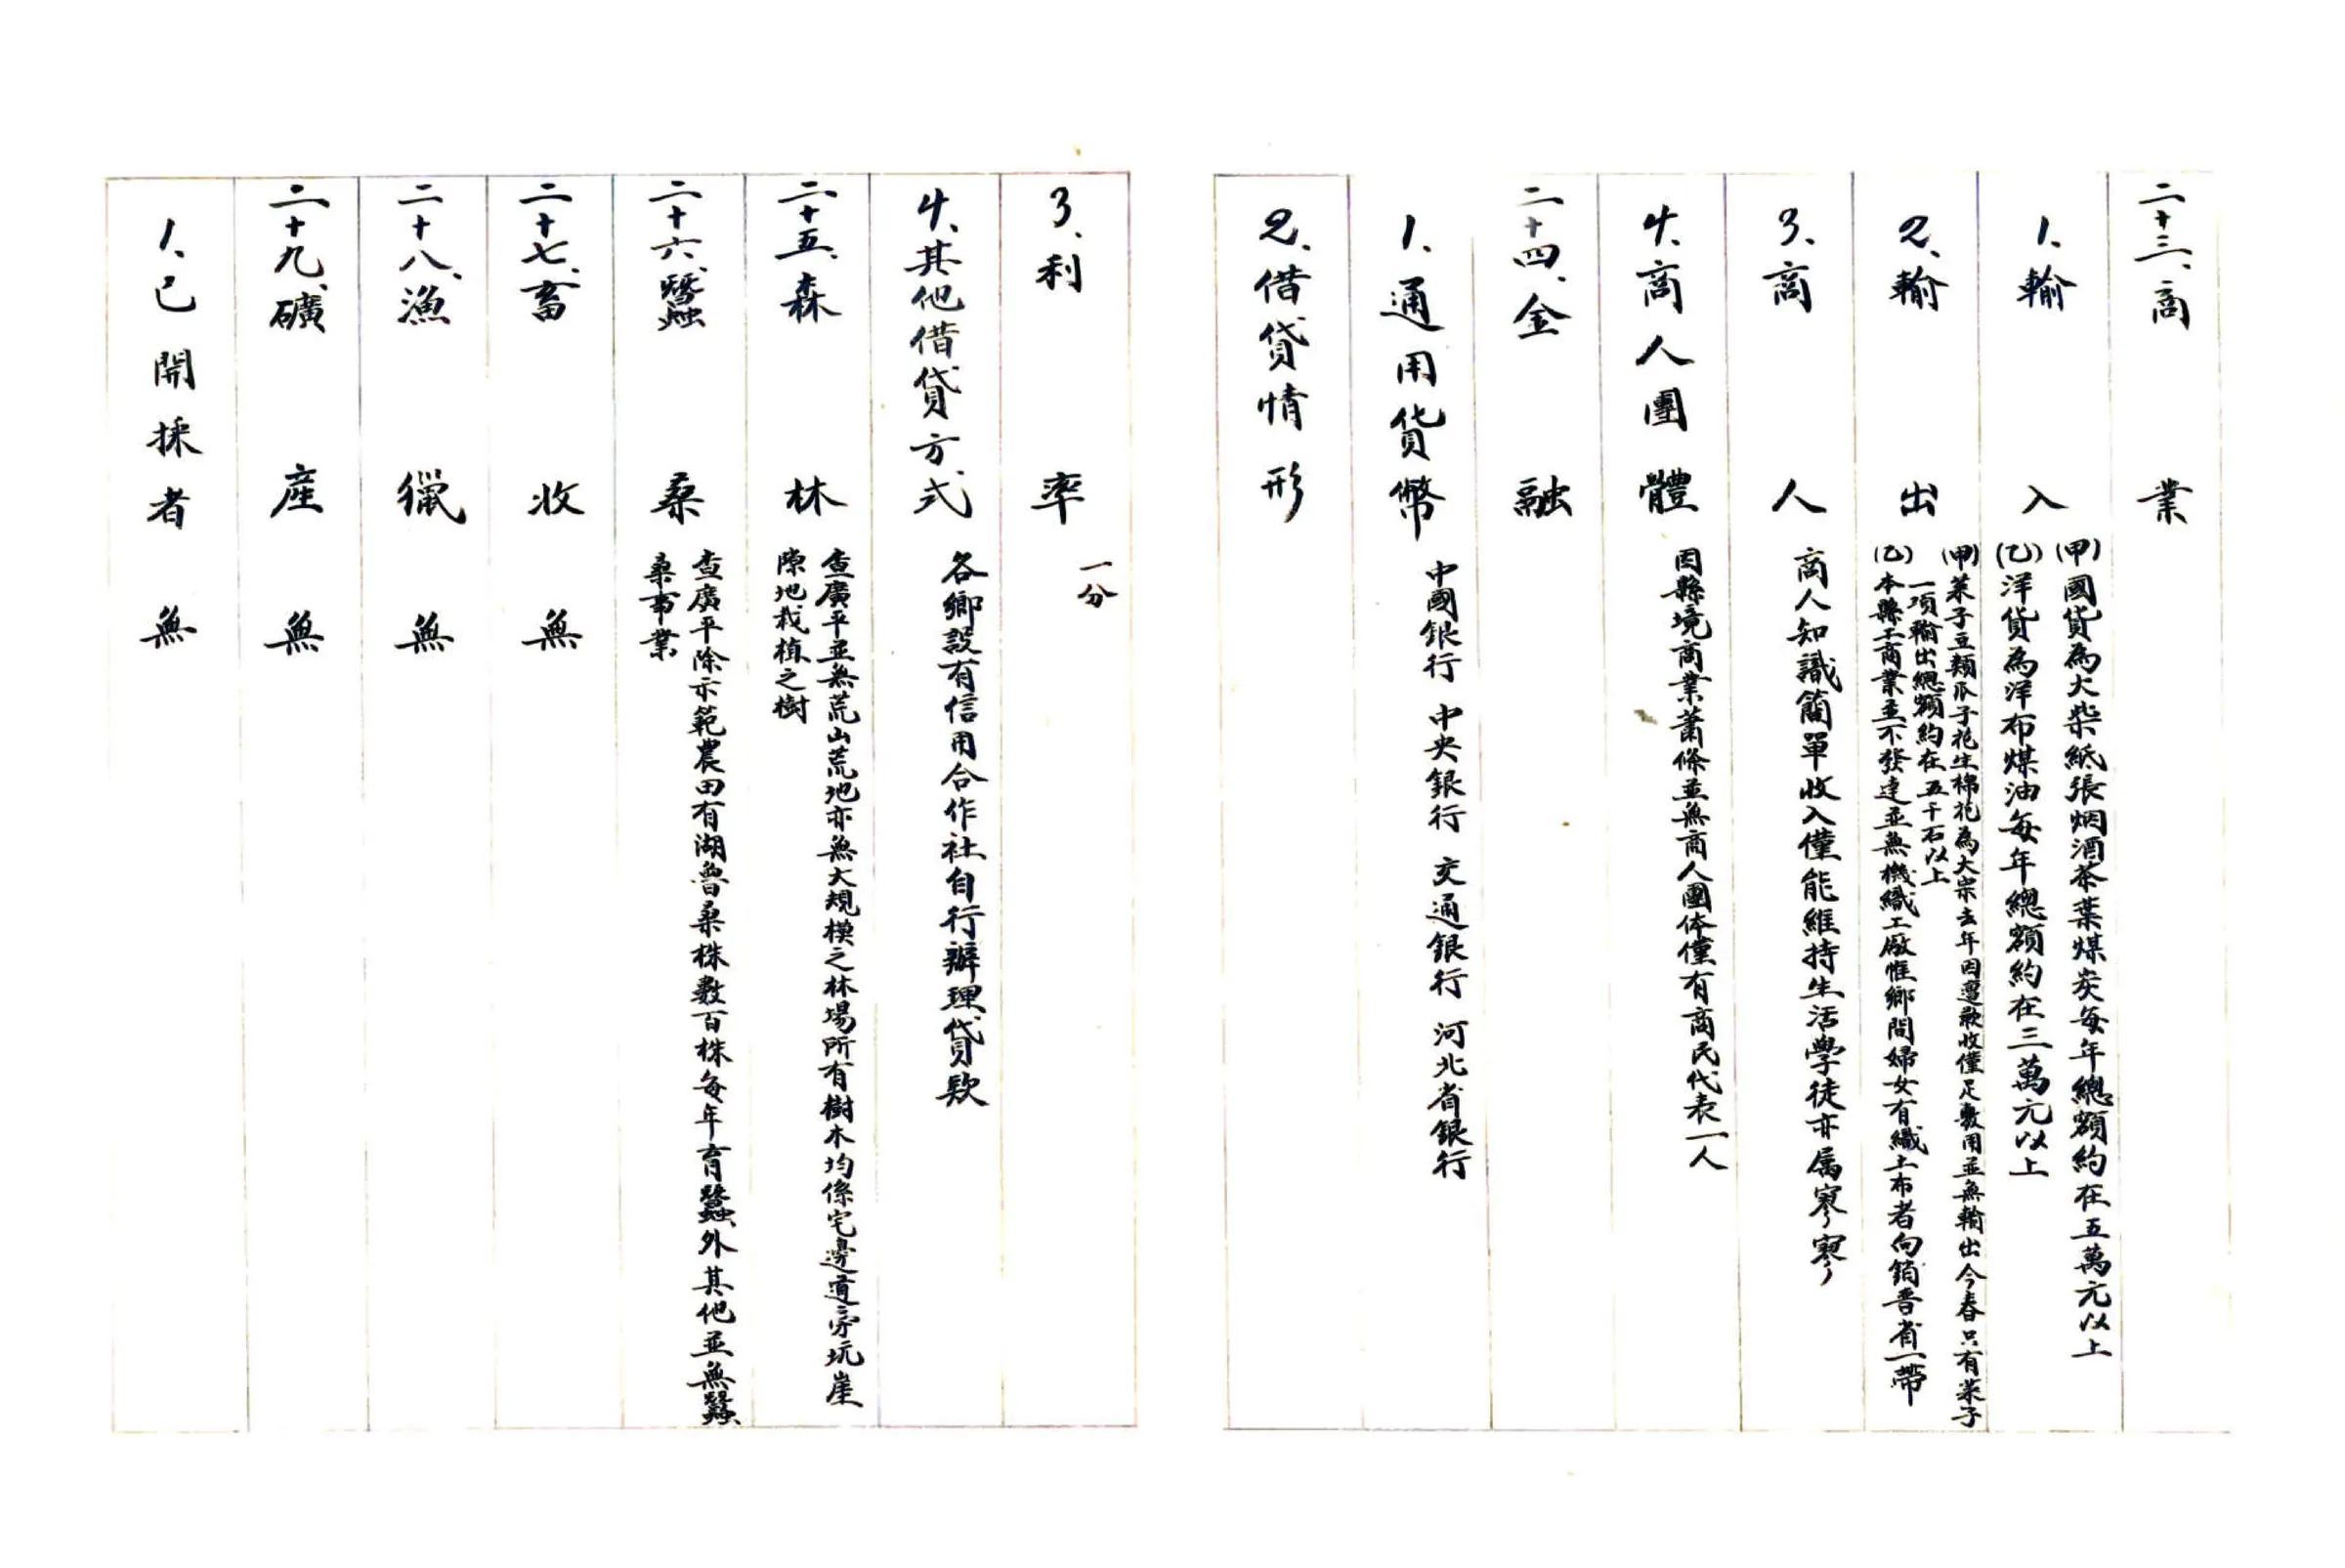 二十三、商業
1、輸入
(甲)國貨為大柴紙張烟酒茶葉煤炭每年總額約在五萬元以上
(乙)洋貨為洋布煤油每年總額約在三萬元以上
2、輸出
(甲)菜子豆類瓜子花生棉花為大宗去年因遭歉收僅足敷用並無輸出今春只有菜子
一項輸出總額約在五千石以上
(乙)本縣工商業並不發達並無機織工廠惟鄉間婦女有織土布者向銷晋省一帶
3、商人
商人知識簡單收入僅能維持生活學徒亦属寥寥
4、商人團體
因縣境商業蕭條並無商人團体僅有商民代表一人
二十四、金融
1、通用貨幣
中國銀行 中央銀行 交通銀行 河北省銀行
2、借貸情形
3、利率
一分
4、其他借貸方式
各鄉設有信用合作社自行辦理貸款
二十五、森林
查廣平並無荒山荒地亦無大規模之林場所有樹木均係宅邊道旁坑崖
隙地栽植之樹
二十六、蠶桑
查廣平除示範農田有湖魯桑株數百株每年育蠶外其他並無蠶
桑事業
二十七、畜收
無
二十八、漁獵
無
二十九、礦產
無
1、已開採者
無